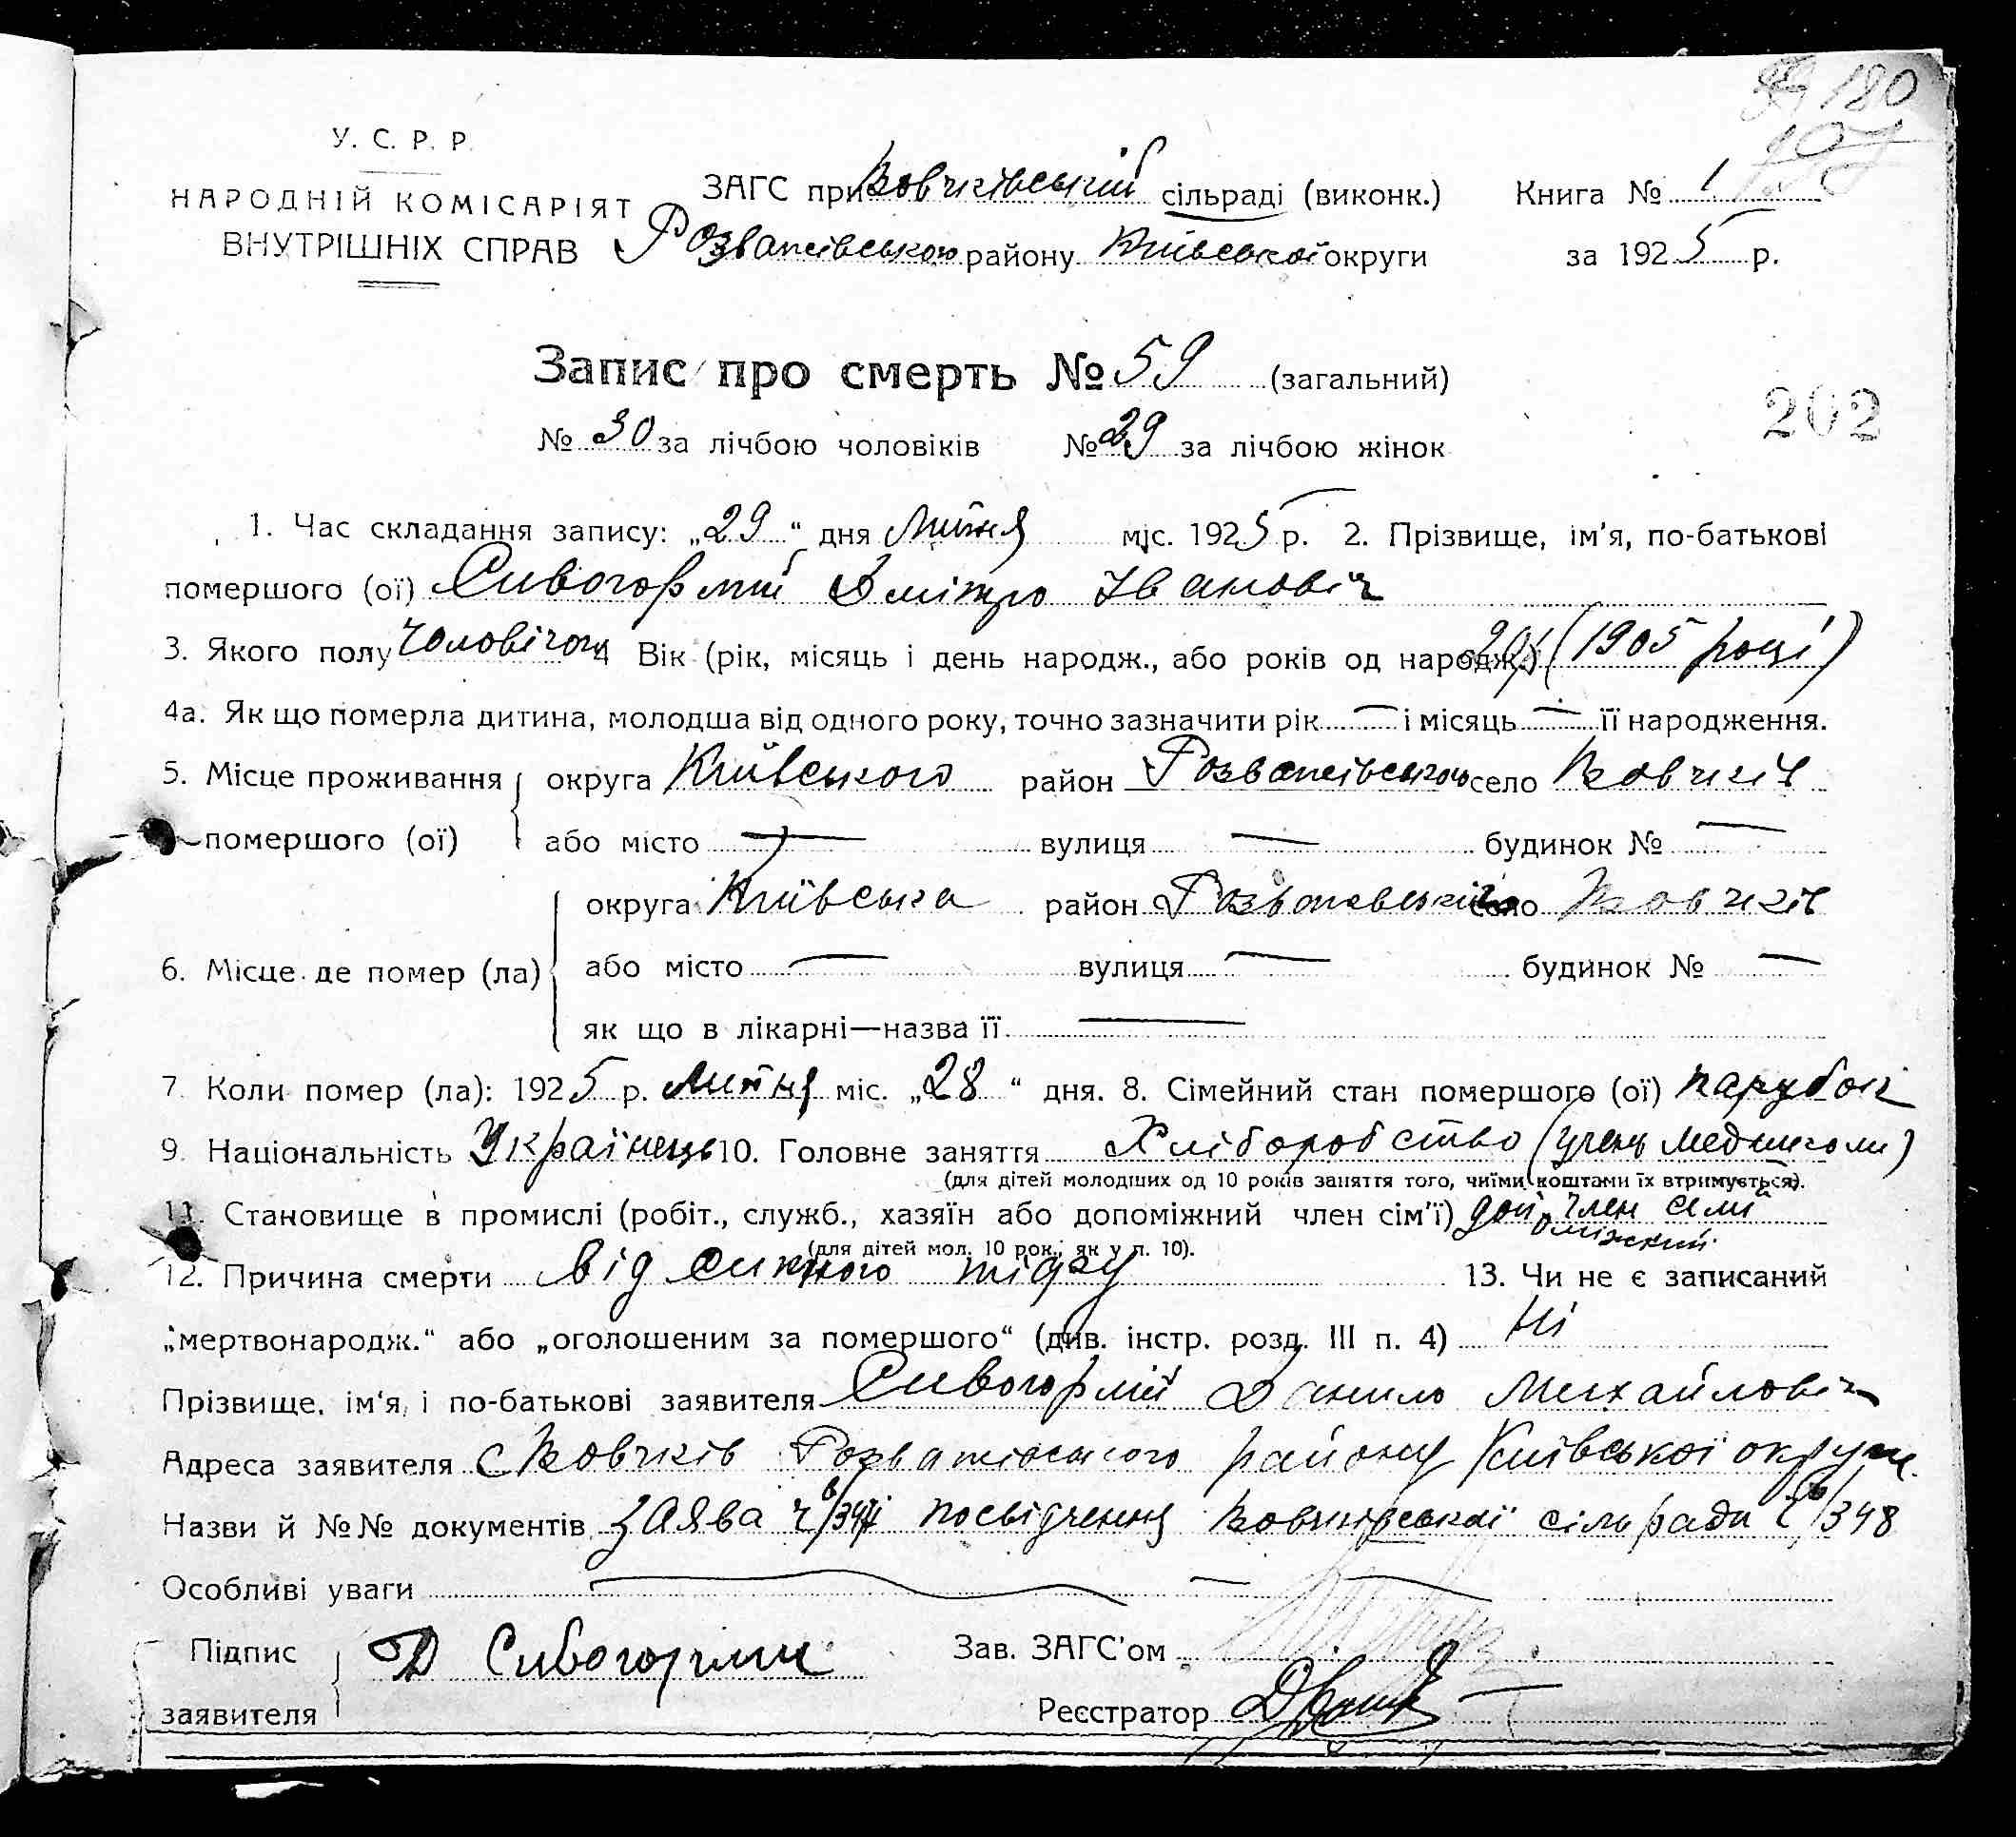 180
У. С. Р. Р.
НАРОДНІЙ КОМІСАРІЯТ
ВНУТРІШНІХ СПРАВ
ЗАГС при Вовчківській сільраді (виконк.)
Розважівського району Київської округи
Книга № 1
за 1925 р.
Запис про смерть № 59 (загальний)
№ 30 за лічбою чоловіків № 29 за лічбою жінок
202
1. Час складання запису: „29“ дня Липня міс. 1925 р. 2. Прізвище, ім'я, по-батькові
помершого (ої) Сивогорлий Дмітро Івановіч
3. Якого полу чоловічого 4 Вік (рік, місяць і день народж., або років од народж.) 20 (1905 році)
4а. Як що померла дитина, молодша від одного року, точно зазначити рік — і місяць — її народження.
5. Місце проживання помершого (ої) округа Київського район Розважівського село Вовчків
або місто — вулиця — будинок № —
6. Місце де помер (ла) округа Київська район Розважевський село Вовчків
або місто — вулиця — будинок № —
як що в лікарні—назва її —
7. Коли помер (ла): 1925 р. Липня міс. „28“ дня. 8. Сімейний стан помершого (ої) парубок
9. Національність Українець 10. Головне заняття Хліборобство (учень медшколи)
(для дітей молодших од 10 років заняття того, чиїми коштами їх втримується).
11. Становище в промислі (робіт., служб., хазяїн або допоміжний член сім'ї) доп. член семі
оміжний
(для дітей мол. 10 рок., як у п. 10).
12. Причина смерти від сипного тіфу 13. Чи не є записаний
„мертвонародж.“ або „оголошеним за помершого“ (див. інстр. розд. III п. 4) Ні
Прізвище, ім'я, і по-батькові заявителя Сивогорлий Данило Михайловіч
Адреса заявителя с Вовчків Розважівського району Київської округи.
Назви й №№ документів заява посвідчення Вовчківської сільради 348
Особливі уваги —
Підпис заявителя Д Сивогорлий
Зав. ЗАГС'ом
Реєстратор